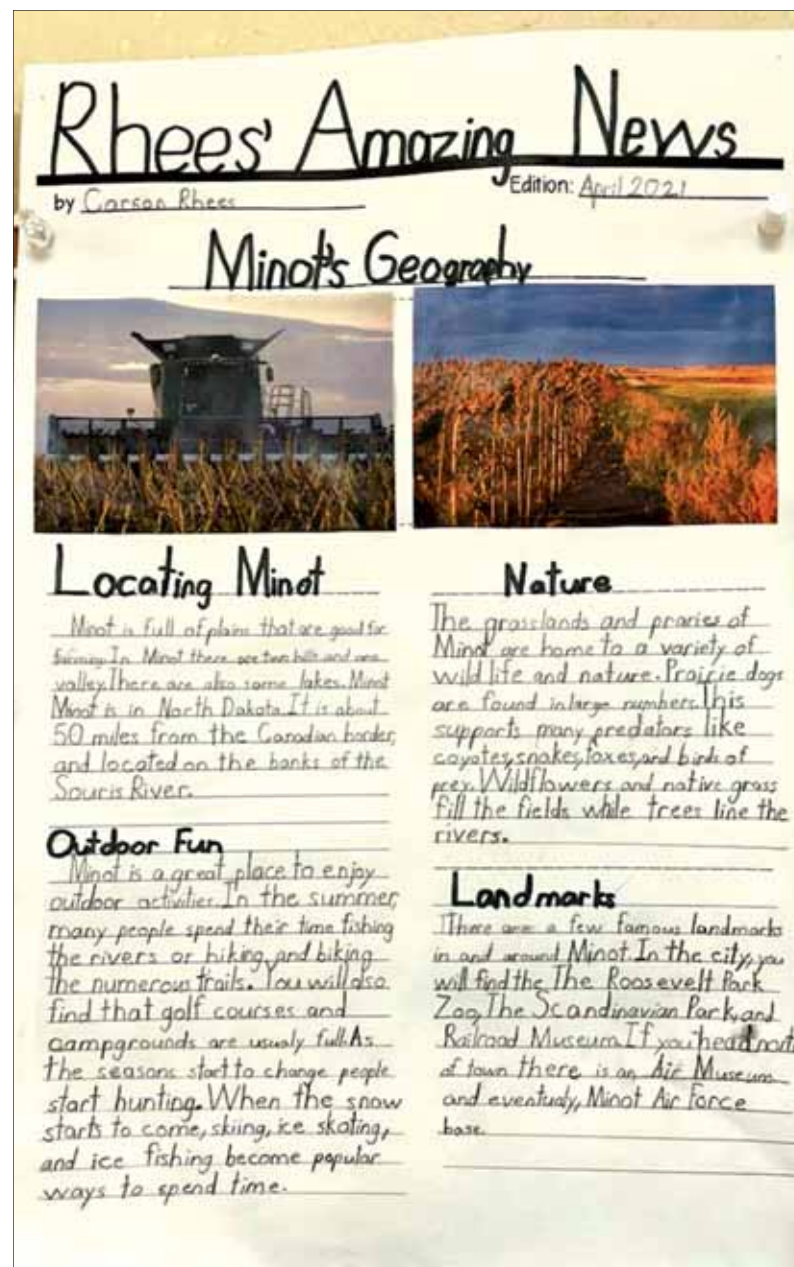 Rhees' Amazing News
by Carson Rhees
Edition: April 2021
Minot's Geography
Locating Minot
Minot is full of plains that are good for
farming. In Minot there are two hills and one
valley. There are also some lakes. Minot
Minot is in North Dakota. It is about
50 miles from the Canadian border,
and located on the banks of the
Souris River.
Outdoor Fun
Minot is a great place to enjoy
outdoor activities. In the summer,
many people spend their time fishing
the rivers or hiking, and biking
the numerous trails. You will also
find that golf courses and
campgrounds are usualy full. As
the seasons start to change people
start hunting. When the snow
starts to come, skiing, ice skating,
and ice fishing become popular
ways to spend time.
Nature
The grasslands and praries of
Minot are home to a variety of
wild life and nature. Prairie dogs
are found in large numbers. This
supports many predators like
coyotes, snakes, foxes, and birds of
prey. Wildflowers and native grass
fill the fields while trees line the
rivers.
Landmarks
There are a few famous landmarks
in and around Minot. In the city, you
will find the The Roosevelt Park
Zoo, The Scandinavian Park, and
Railroad Museum. If you head nort
of town there is an Air Museum
and eventualy, Minot Air Force
base.